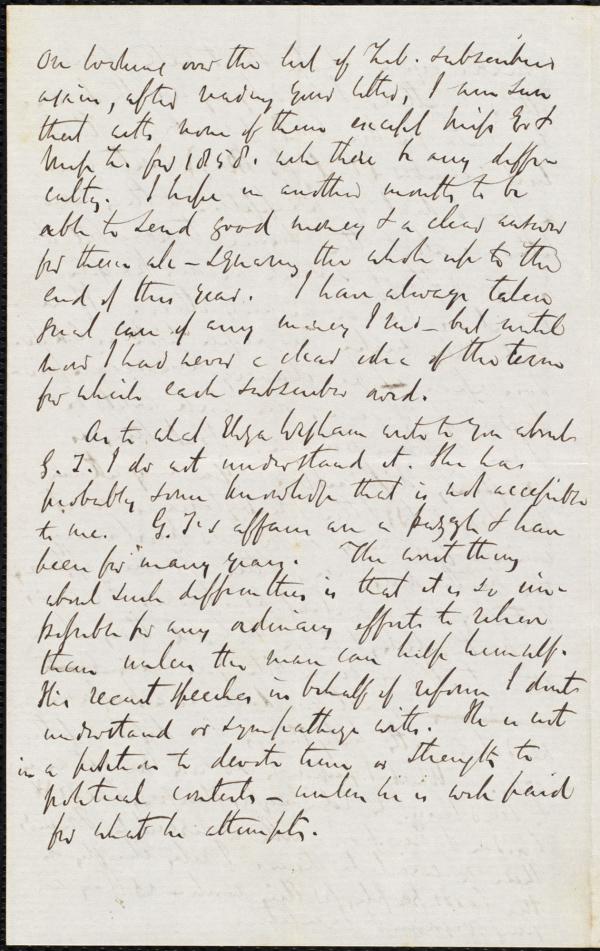 On looking over the list of Lib. subscribers
again, after reading your letter, I am sure
that none of them except Miss
Miss for 1858. there be any diffi-
culty. I hope in another month to be
able to send good money & a clear answer
for them all – squaring the whole up to the
end of this year. I have always taken
great care of any money I had – but until
now I had never a clear idea of the term
for which each subscriber owed.
As to what Eliza Wigham writes to you about
G. T. I do not understand it. She has
probably some knowledge that is not accessible
to me. G. T.'s affairs are a puzzle & have
been for many years. The worst thing
about such difficulties is that it is so im-
possible for any ordinary efforts to relieve
them unless the man can help himself.
His recent speeches in behalf of reform I don't
understand or sympathize with. He is not
in a position to devote time or strength to
political contests – unless he is well paid
for what he attempts.